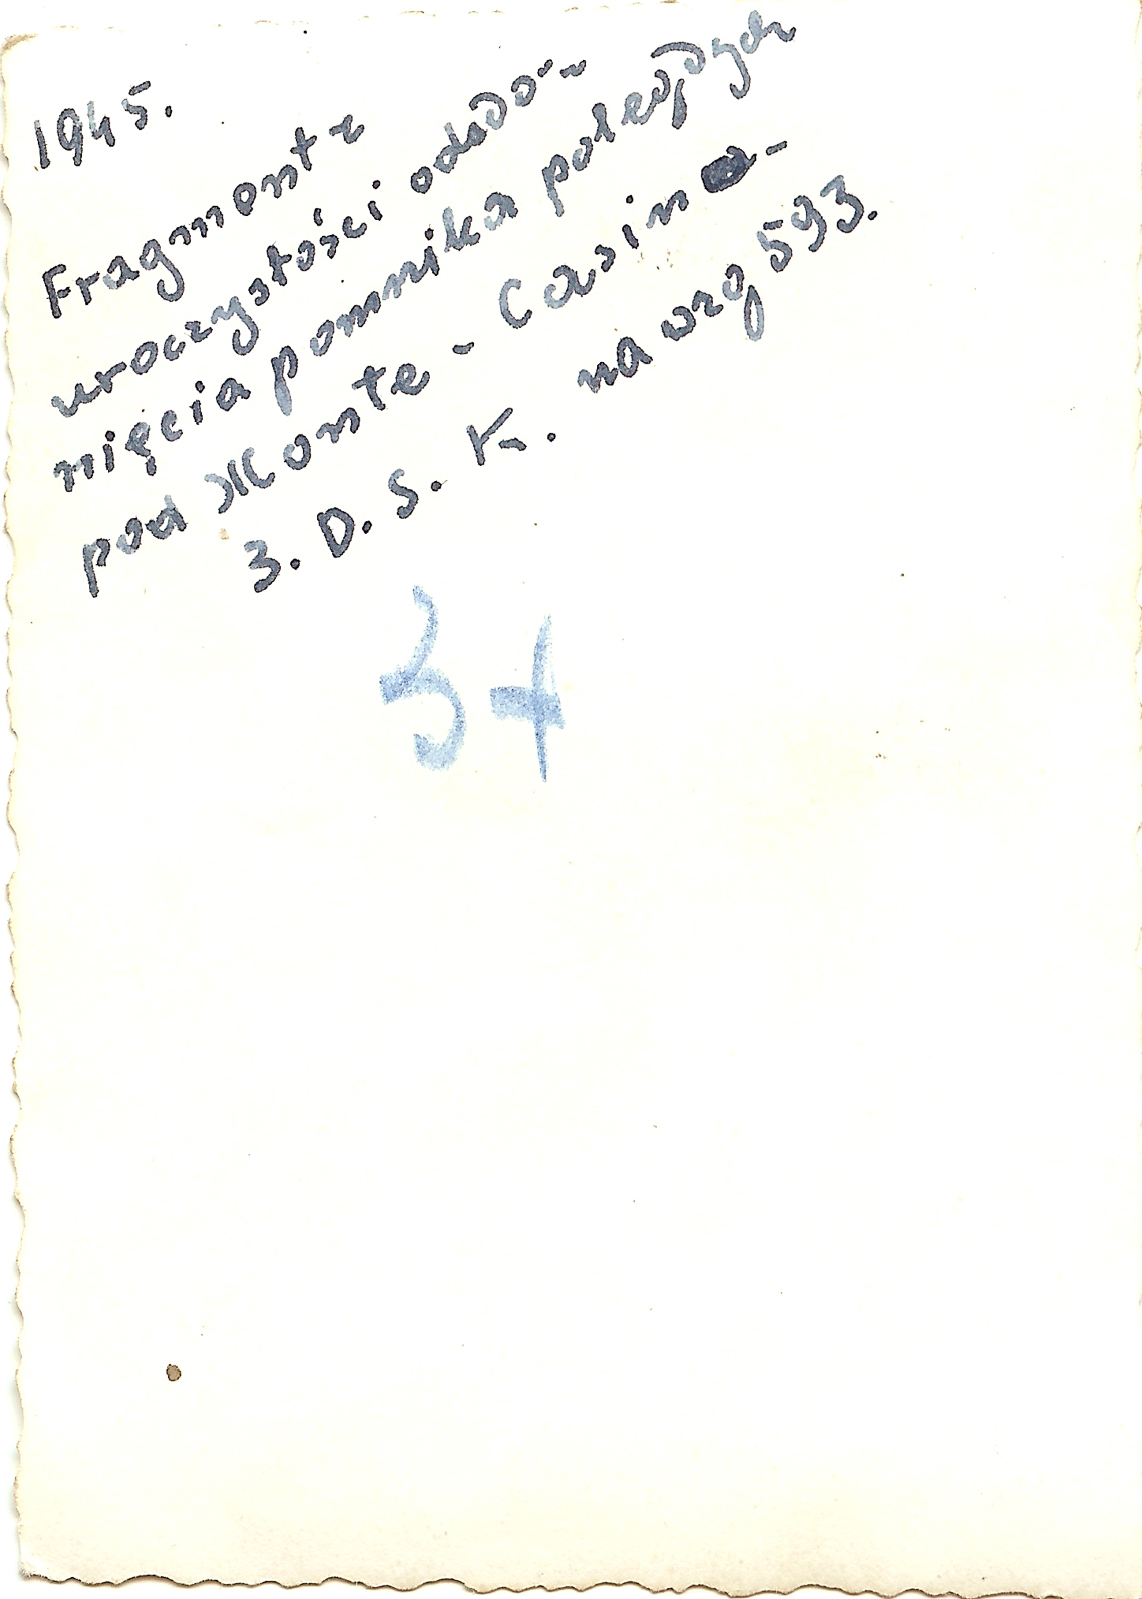 1945.
Fragment z
uroczystości odsło-
nięcia pomnika poległych
pod Monte - Casino -
3. D. S. K. na wzg 593.
37